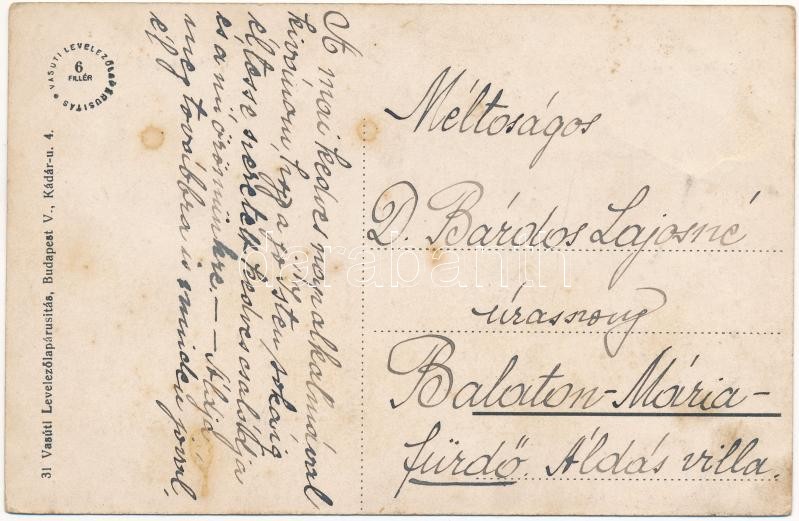 A mai kedves napon alkalmával
kivánom, hogy a jó Isten sokáig
éltesse szeretett kedves családja
és a mi örömünkre. — — Áldja
meg továbbra is minden jóval,
VASUTI LEVELEZŐLAPÁRUSITÁS
6
FILLÉR
31 Vasúti Levelezőlapárusitás, Budapest V., Kádár-u. 4.
Méltóságos
D. Bárdos Lajosné
úrasszony
Balaton-Mária-
fürdő. Áldás villa.
darabanth